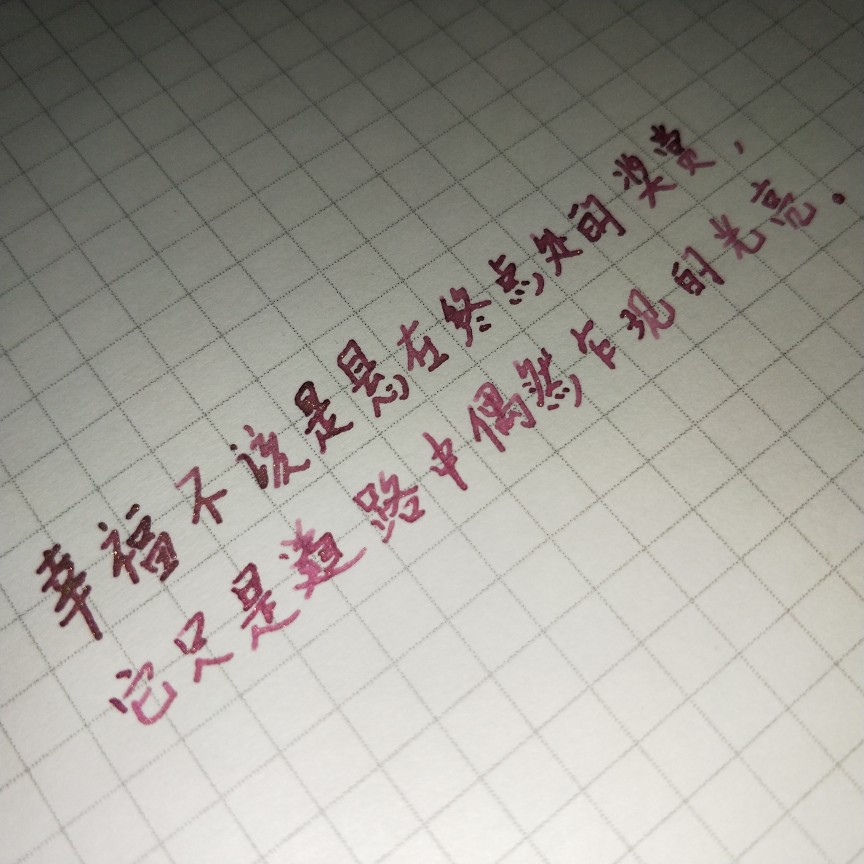 幸福不该是悬在终点处的奖赏，
它只是道路中偶然乍现的光亮．